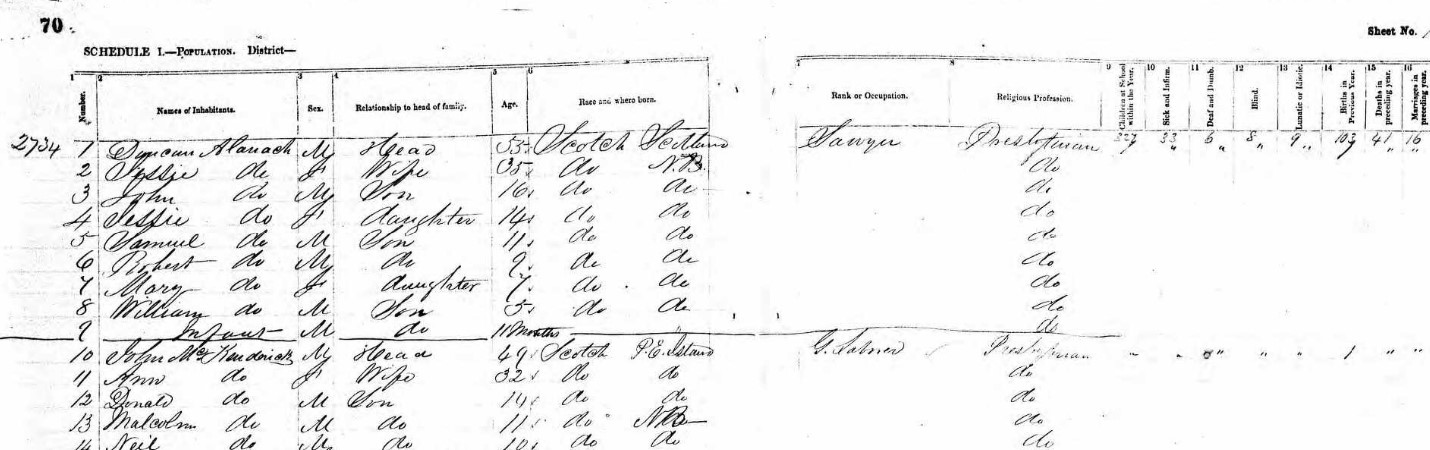 70
Sheet No.
SCHEDULE I.—POPULATION. District—
1 2 3 4 5 6 7 8 9 10 11 12 13 14 15 16
Number. Names of Inhabitants. Sex. Relationship to head of family. Age. Race and where born. Rank or Occupation. Religious Profession. Children at School within the Year. Sick and Infirm. Deaf and Dumb. Blind. Lunatic or Idiotic. Births in Previous Year. Deaths in preceding year. Marriages in preceding year.
2734 1 Duncan Alanach M Head 53 Scotch Scotland Sawyer Presbyterian 33 6 8 9 103 41 16
2 Jessie do F Wife 35 do N.B. do
3 John do M Son 16 do do do
4 Jessie do F daughter 14 do do do
5 Samuel do M Son 11 do do do
6 Robert do M do 9 do do do
7 Mary do F daughter 7 do do do
8 William do M Son 5 do do do
9 Infant M do 11 Months " do
10 John McKendrick M Head 49 Scotch P.E. Island G. Labner Presbyterian " " " " " 1 " "
11 Ann do F Wife 32 do do do
12 Donald do M Son 14 do do do
13 Malcolm do M do 11 do N.B. do
14 Neil do M do 10 do do do